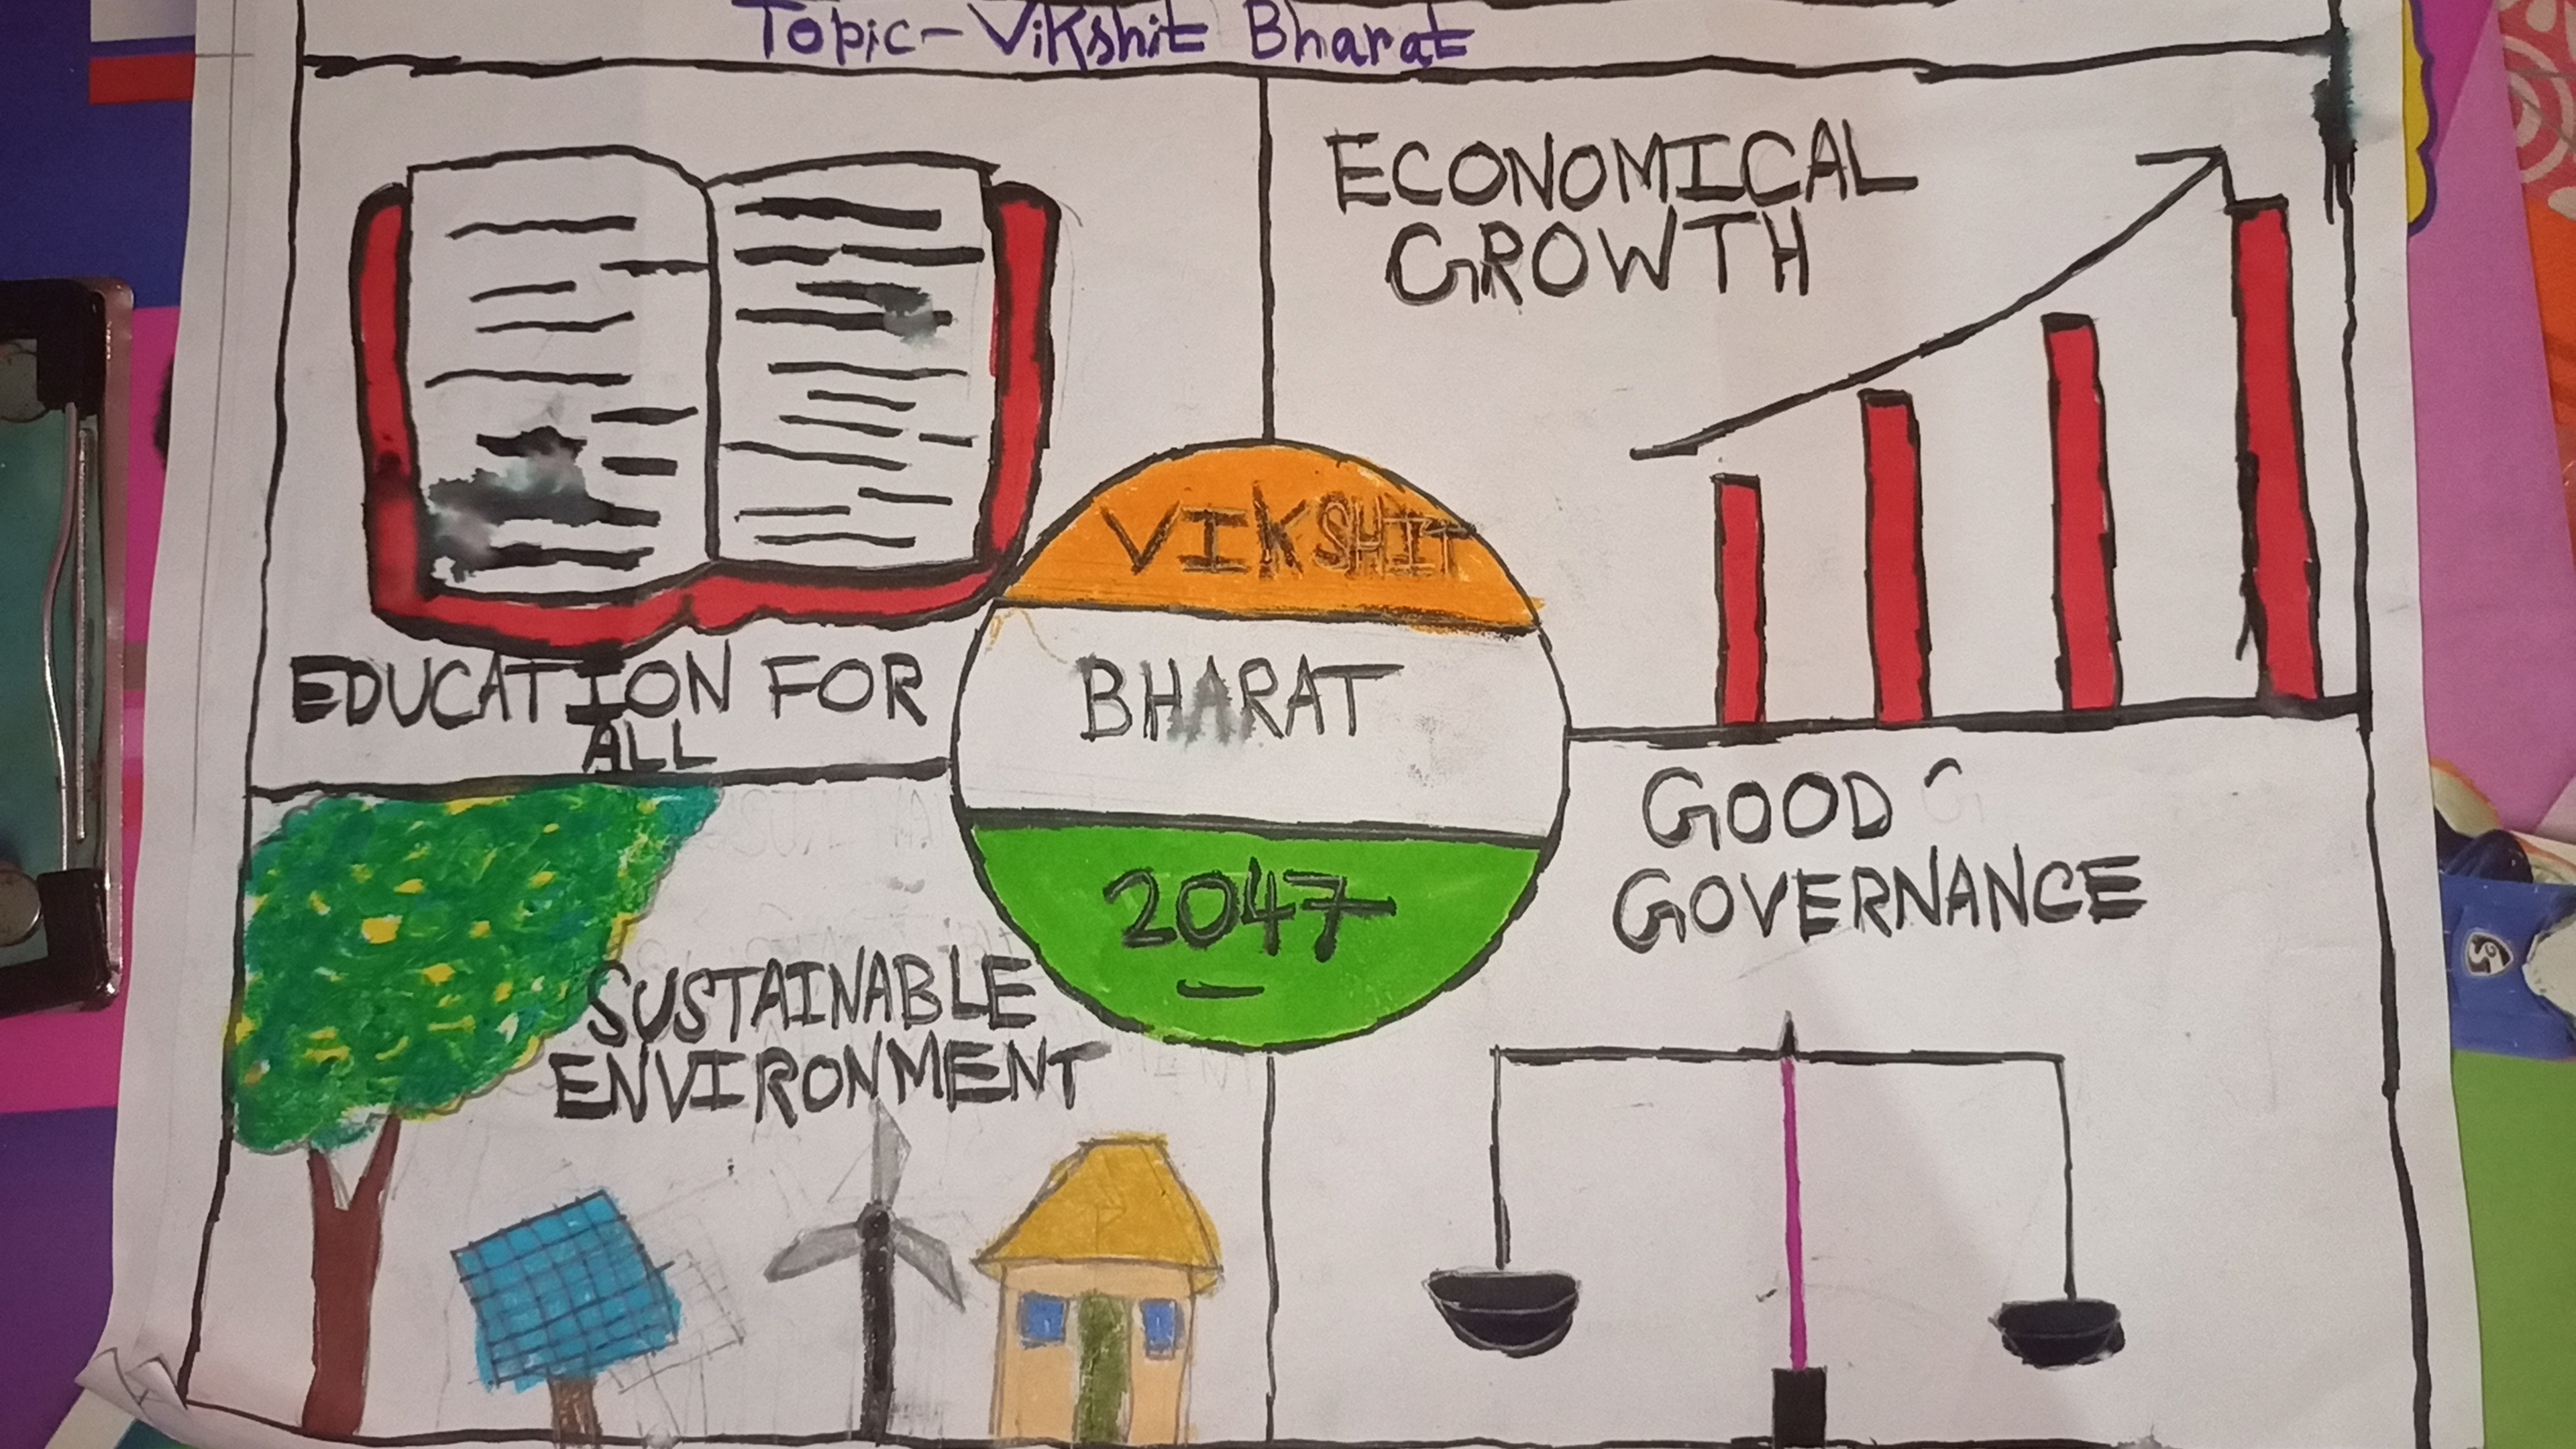 Topic - Vikshit Bharat
ECONOMICAL
GROWTH
EDUCATION FOR
ALL
VIKSHIT
BHARAT
2047
GOOD
GOVERNANCE
SUSTAINABLE
ENVIRONMENT